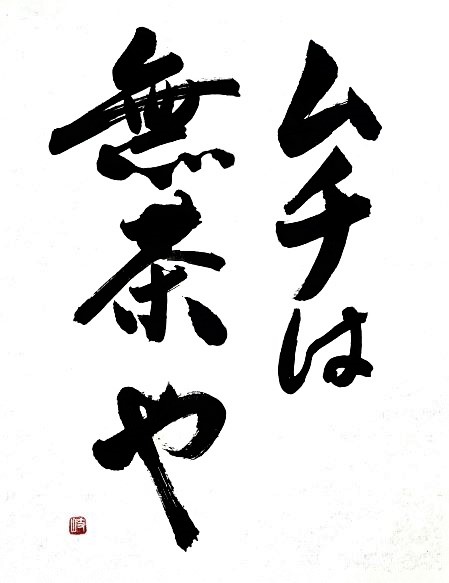 ムチは
無茶や